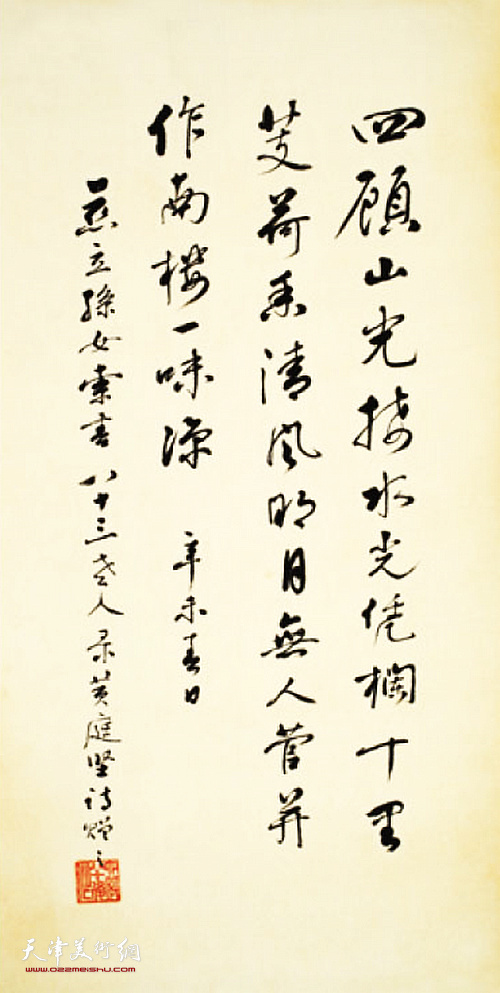 四顾山光接水光凭欄十里
芰荷香清风明月無人管并
作南楼一味凉 辛未春日
燕立孫女索書八十三老人录黄庭坚诗赠之
天津美術網
www.022meishu.com